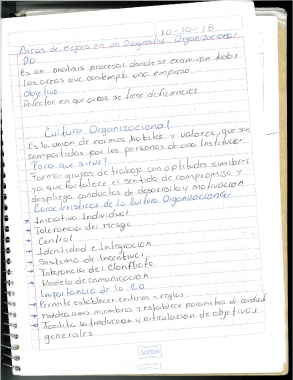 10-10-18
Areas de mejora en un Diagnostico Organizacional
DO
Es un analisis procesal donde se examinan todas
las areas que contempla una empresa
Objetivo
Detectar en que areas se tiene deficiencias
Cultura Organizacional
Es la union de normas, habitos y valores que son
compartidos por las personas de una Institucion
Para que sirve?
Formar grupos de trabajo con aptitudes similares
ya que fortalece el sentido de compromiso y
despliega conductas de desarrollo y motivacion
Caracteristicas de la Cultura Organizacional
Iniciativa Individual
Tolerancia del riesgo
Control
Identidad e Integracion
Sistema de Incentivos
Tolerancia del Conflicto
Modelo de comunicacion
Importancia de la C.O
Permite establecer criterios y reglas
Moldea a sus miembros y establece parametros de conducta
Facilita la introduccion y articulacion de objetivos
generales